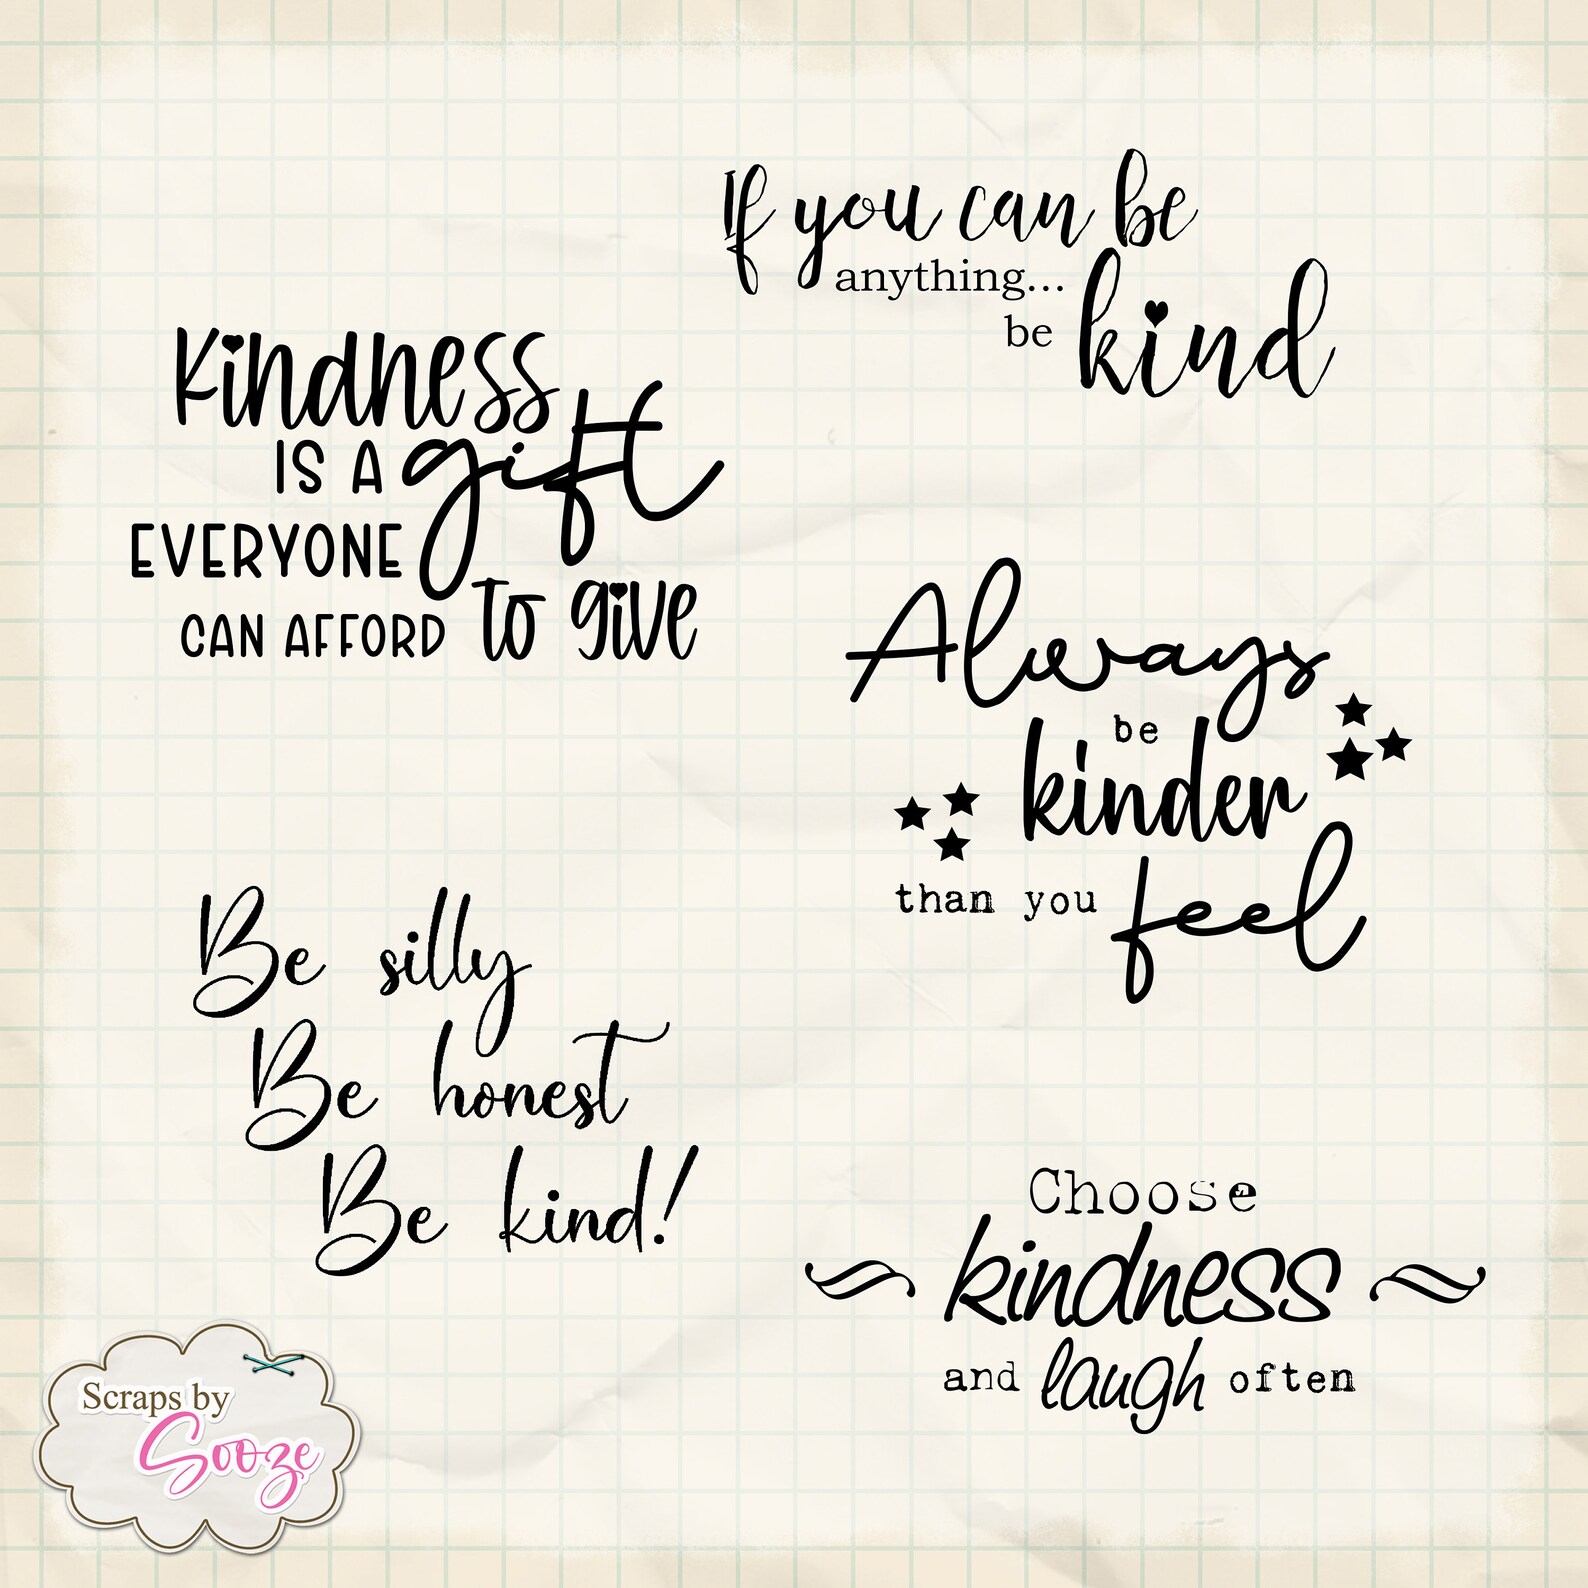 If you can be
anything...
be kind
Kindness
IS A gift
EVERYONE
CAN AFFORD to give
Always
be
kinder
than you feel
Be silly
Be honest
Be kind!
Choose
kindness
and laugh often
Scraps by
Sooze